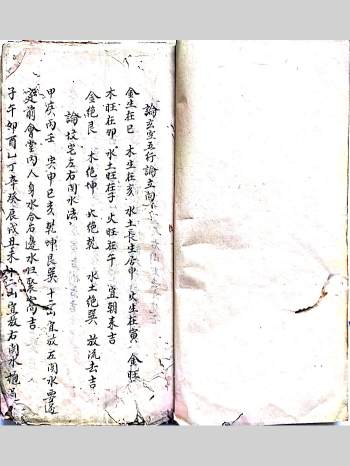 論玄空五行論立向
金生在巳 木生在亥 水土長生居申 火生在寅 金旺
木旺在卯 水土旺在子 火旺在午 宜朝來吉
金绝艮 木绝坤 火绝乾 水土绝巽 放流去吉
論坟宅左右関水法
甲庚丙壬 寅申巳亥 乾坤艮巽 十二山 宜放左関水 要過
堂前會堂内人身水合右邊水 吉
子午卯酉 乙丁辛癸 辰戌丑未 十二山 宜放右関水